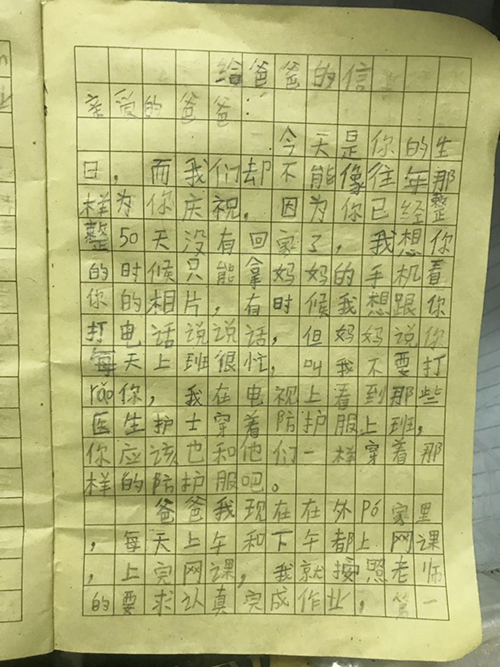 给爸爸的信
亲爱的爸爸：
今天是你的生
日，而我们却不能像往年那
样为你庆祝，因为你已经整
整50天没有回家了，我想你
的时候只能拿妈妈的手机看
你的相片，有时候我想跟你
打电话说说话，但妈妈说你
每天上班很忙，叫我不要打
rǎo你，我在电视上看到那些
医生护士穿着防护服上班，
你应该也和他们一样穿着那
样的防护服吧。
爸爸我现在在外pó家里
，每天上午和下午都上网课
，上完网课，我就按照老师
的要求认真完成作业，第一